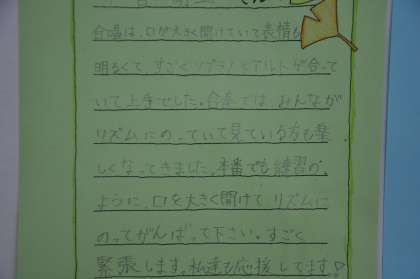 合唱は、口が大きく開けていて表情も
明るくて、すごくソプラノとアルトが合って
いて上手でした。合奏では、みんなが
リズムにのっていて見ている方も楽
しくなってきました。本番でも練習の
ように、口を大きく開けて、リズムに
のってがんばって下さい。すごく
緊張します。私達も応援してます♡